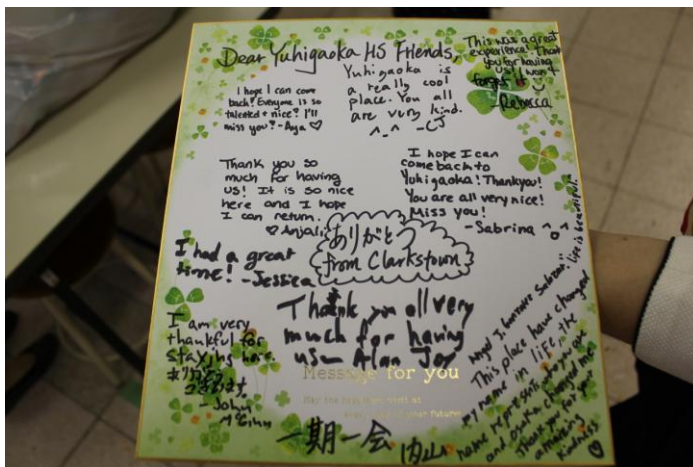 Dear Yuhigaoka HS Friends,
This was a great
experience! Thank
you for having
us! I won't
forget it
-Rebecca
I hope I can come
back! Everyone is so
talented + nice! I'll
miss you! - Anya ♡
Yuhigaoka is
a really cool
place. You all
are very kind.
^_^ -CJ
Thank you so
much for having
us! It is so nice
here and I hope
I can return.
♡ Anjali
I hope I can
come back to
Yuhigaoka! Thank you!
You are all very nice!
Miss you!
-Sabrina ^o^
ありがとう
from Clarkstown
I had a great
time! -Jessica
Thank you all very
much for having
us - Alan Joy
I am very
thankful for
staying here.
ありがとう
ございます
-John
Message for you
May the best
of your future
一期一会
内山
life is beautiful."
This place have changed
my name in life, the
name represents
and osaka changed me
Thank you for your
amazing
kindness ♡